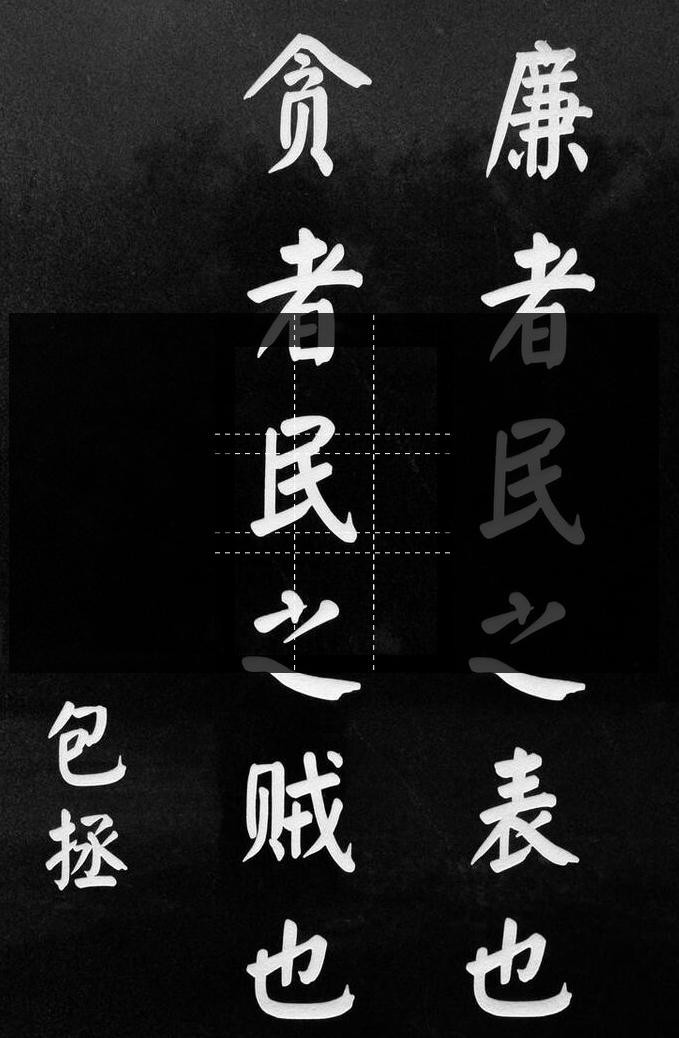 廉者民之表也
贪者民之贼也
包拯